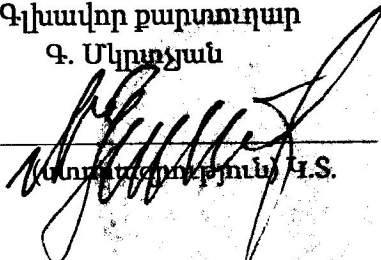 Գլխավոր քարտուղար
Գ. Մկրտչյան
(ստորագրություն) Կ.Տ.